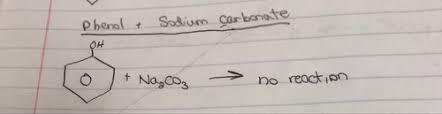 Phenol + Sodium Carbonate
OH
+ Na₂CO₃ → no reaction